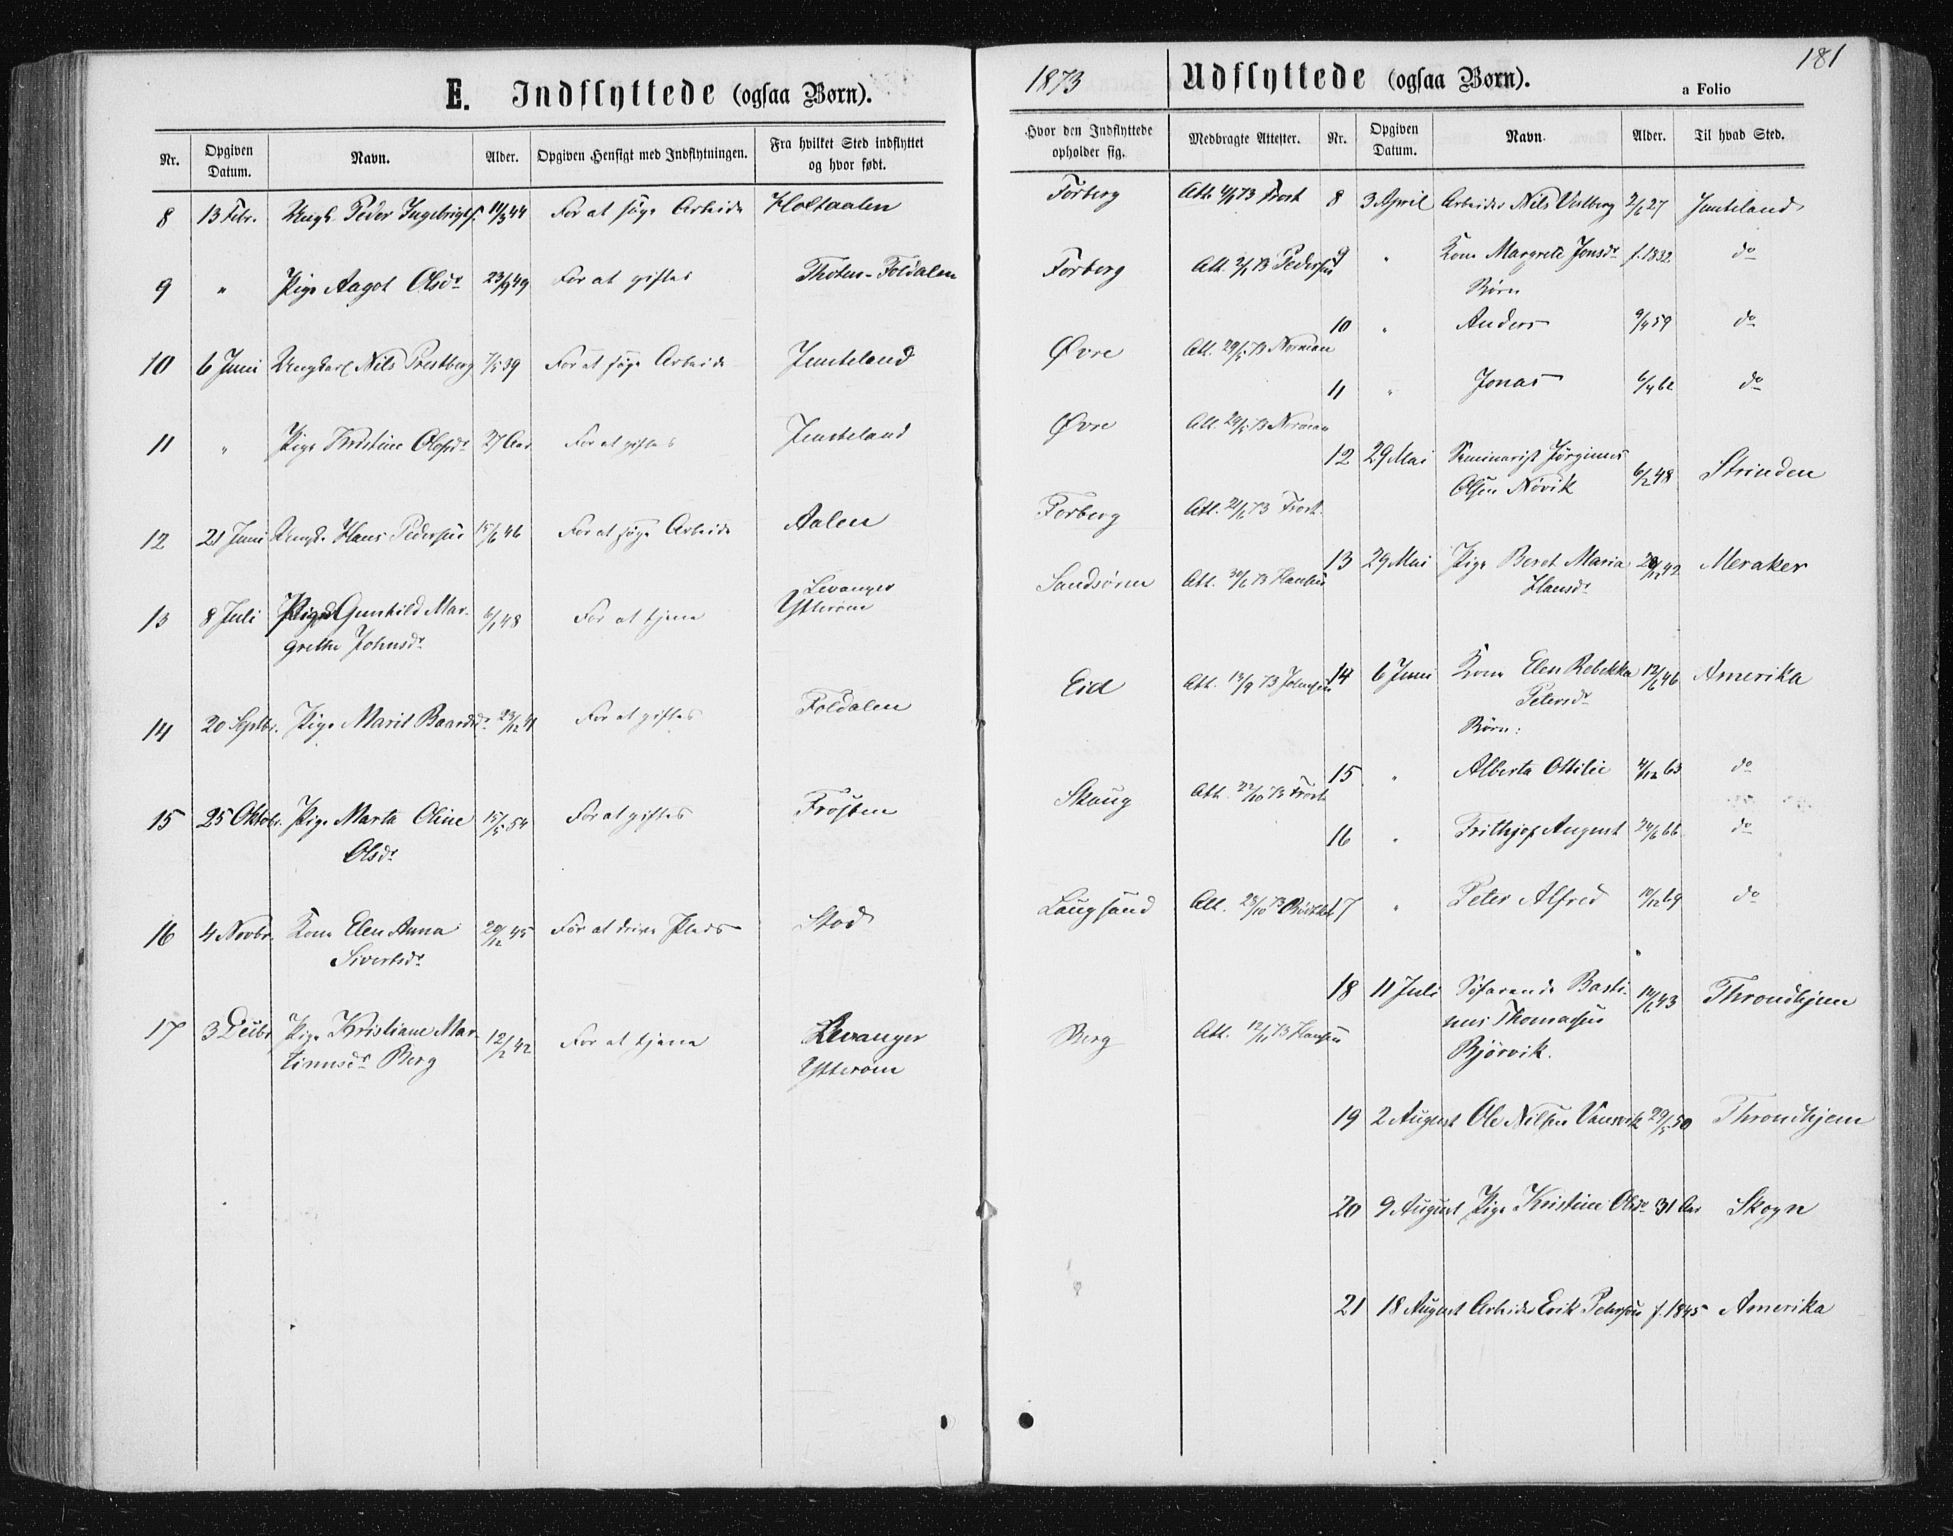 181
E. Indflyttede (ogsaa Børn).
1873
Udflyttede (ogsaa Børn).
a Folio
Nr. Opgiven Datum. Navn. Alder. Opgiven Hensigt med Indflytningen. Fra hvilket Sted indflyttet og hvor født.
Hvor den Indflyttede opholder sig. Medbragte Attester. Nr. Opgiven Datum. Navn. Alder. Til hvad Sted.
8 13 Febr. Ungk. Peder Ingebrigts. 44 For at søge Arbeide Holtaalen
9 " Pige Aagot Olsdr 23/9 49 For at giftes Foldalen
10 6 Juni Ungkarl Nils Prestberg 7/5 39 For at søge Arbeide Jemteland
11 " Pige Kristine Olofsdr 27 Aar For at giftes Jemteland
12 21 Juni Ungk. Hans Pedersen 15/6 46 For at søge Arbeide Aalen
13 8 Juli Pige Gunhild Mar-
grethe Johnsdr 48 For at tjene Levanger
Ytterøen
14 20 Septbr. Pige Marit Baardsdr 23/12 41 For at giftes Foldalen
15 25 Oktobr. Pige Marta Oline 15/5 54 For at giftes Frosten
Olsdr
16 4 Novbr. Kone Elen Anna 20/12 45 For at drive Plads Stod
Sivertsdr
17 3 Decbr. Pige Kristiane Mar-
tinusdr Berg 12/2 42 For at tjene Levanger
Ytterøen
Forberg Att. 73 Frost
Forberg Att. 73 Pedersen
Øvre Att. 29/5 73 Norman
Øvre Att. 29/5 73 Norman
Forberg Att. 21/6 73 Frost.
Sandsøren Att. 30/6 73 Hansen
Eid Att. 13/9 73 Johnsen
Skaug Att. 22/10 73 Frost
Langsand Att. 28/10 73
Berg Att. 12/11 73 Hansen
8 3 April Arbeider Nils Vestberg 2/6 27 Jemteland
9 " Kone Margrete Jonsdr f. 1832 do
Børn
10 " Anders 9/4 59 do
11 " Jonas 6/4 62 do
12 29 Mai Seminarist Jørginus
Olsen Nøvik 6/2 48 Strinden
13 29 Mai Pige Beret Maria 42 Meraker
Hansdr
14 6 Juni Kone Elen Rebekka 12/6 46 Amerika
Petersdr
Børn:
15 " Alberta Ottilie 4/12 63 do
16 " Frithjof August 24/6 66 do
17 " Peter Alfred 10/12 69 do
18 11 Juli Søfarende Basti-
nus Thomassen 14/6 43 Throndhjem
Bjørvik.
19 2 August Ole Nilsen 29/5 50 Throndhjem
20 9 August Pige Kristine Olsdr 31 Aar Skogn
21 18 August Arbeider Erik Petersen f. 1845 Amerika